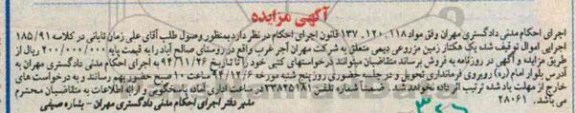 آگهی مزایده
اجرای احکام مدنی دادگستری مهران وفق مواد ۱۱۸ ، ۱۲۰ ، ۱۳۷ قانون اجرای احکام در نظر دارد بمنظور وصول طلب آقای علی زمان تابانی در کلاسه ۱۸۵/۹۱
اجرایی اموال توقیف شده یک هکتار زمین مزروعی دیمی متعلق به شرکت مهران آجر غرب واقع در روستای صالح آباد را به قیمت پایه ۲۰۰/۰۰۰/۰۰۰ ریال از
طریق مزایده و آگهی در روزنامه به فروش برساند متقاضیان میتوانند درخواستهای کتبی خود را تا تاریخ ۹۴/۱۱/۲۶ به اجرای احکام مدنی دادگستری مهران به
آدرس بلوار امام (ره) روبروی فرمانداری تحویل و در جلسه حضوری روز پنج شنبه مورخه ۹۴/۱۲/۶ ساعت ۱۰ صبح حضور بهم رسانند و به درخواست های
خارج از مهلت یاد شده ترتیب اثر داده نخواهد شد. ضمناً شماره تلفن ۳۳۸۲۵۱۸۱ در ساعت اداری آماده پاسخگویی و ارائه اطلاعات به متقاضیان محترم
می باشد. ۲۸۰۶۱
مدیر دفتر اجرای احکام مدنی دادگستری مهران - یشاره صیفی